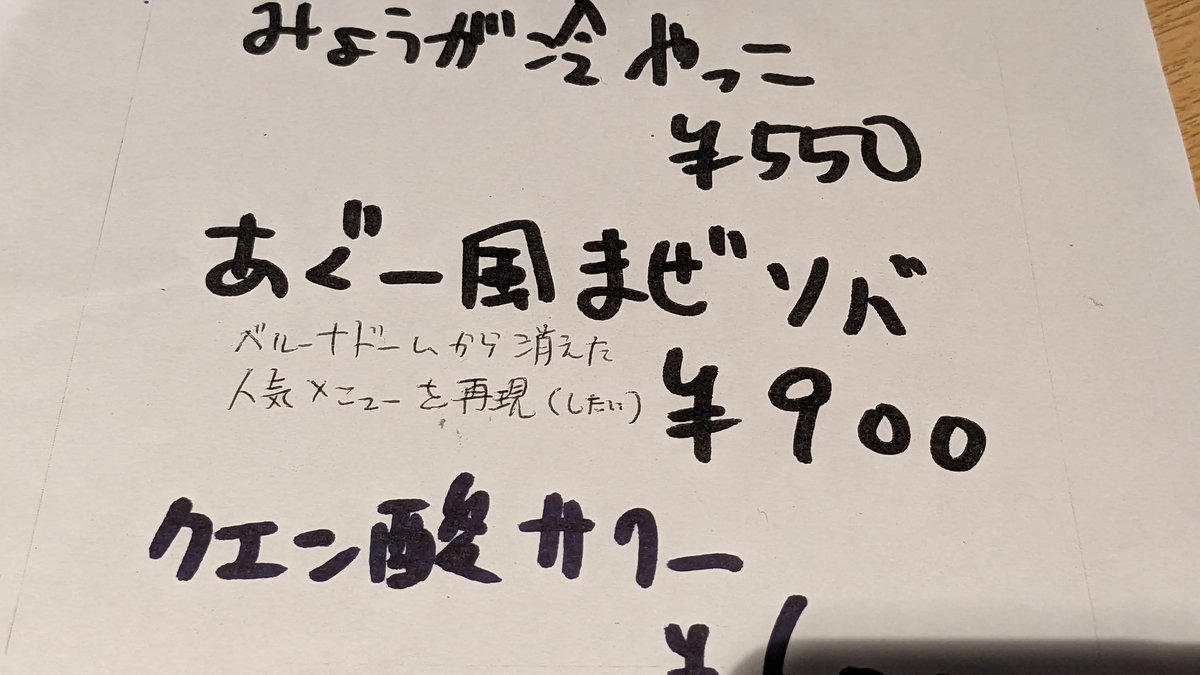 みょうが冷やっこ
¥550
あぐー風まぜソバ
ベルーナドームから消えた
人気メニューを再現(したい)
¥900
クエン酸サワー
¥